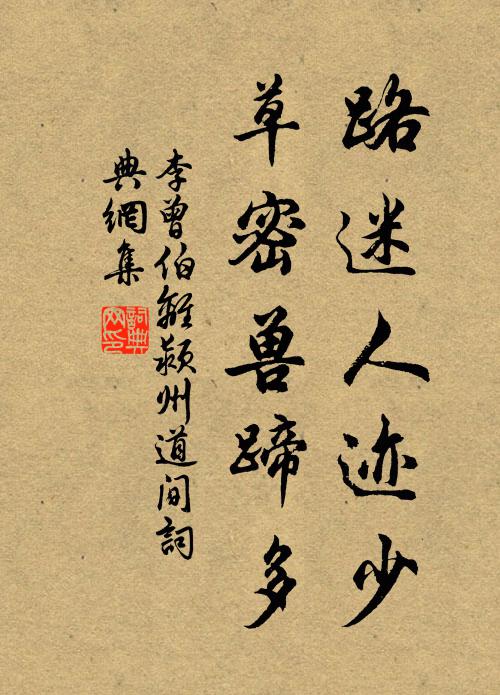 路迷人迹少
草密兽蹄多
李曾伯離颍州道间詞
典網集
詞典网印